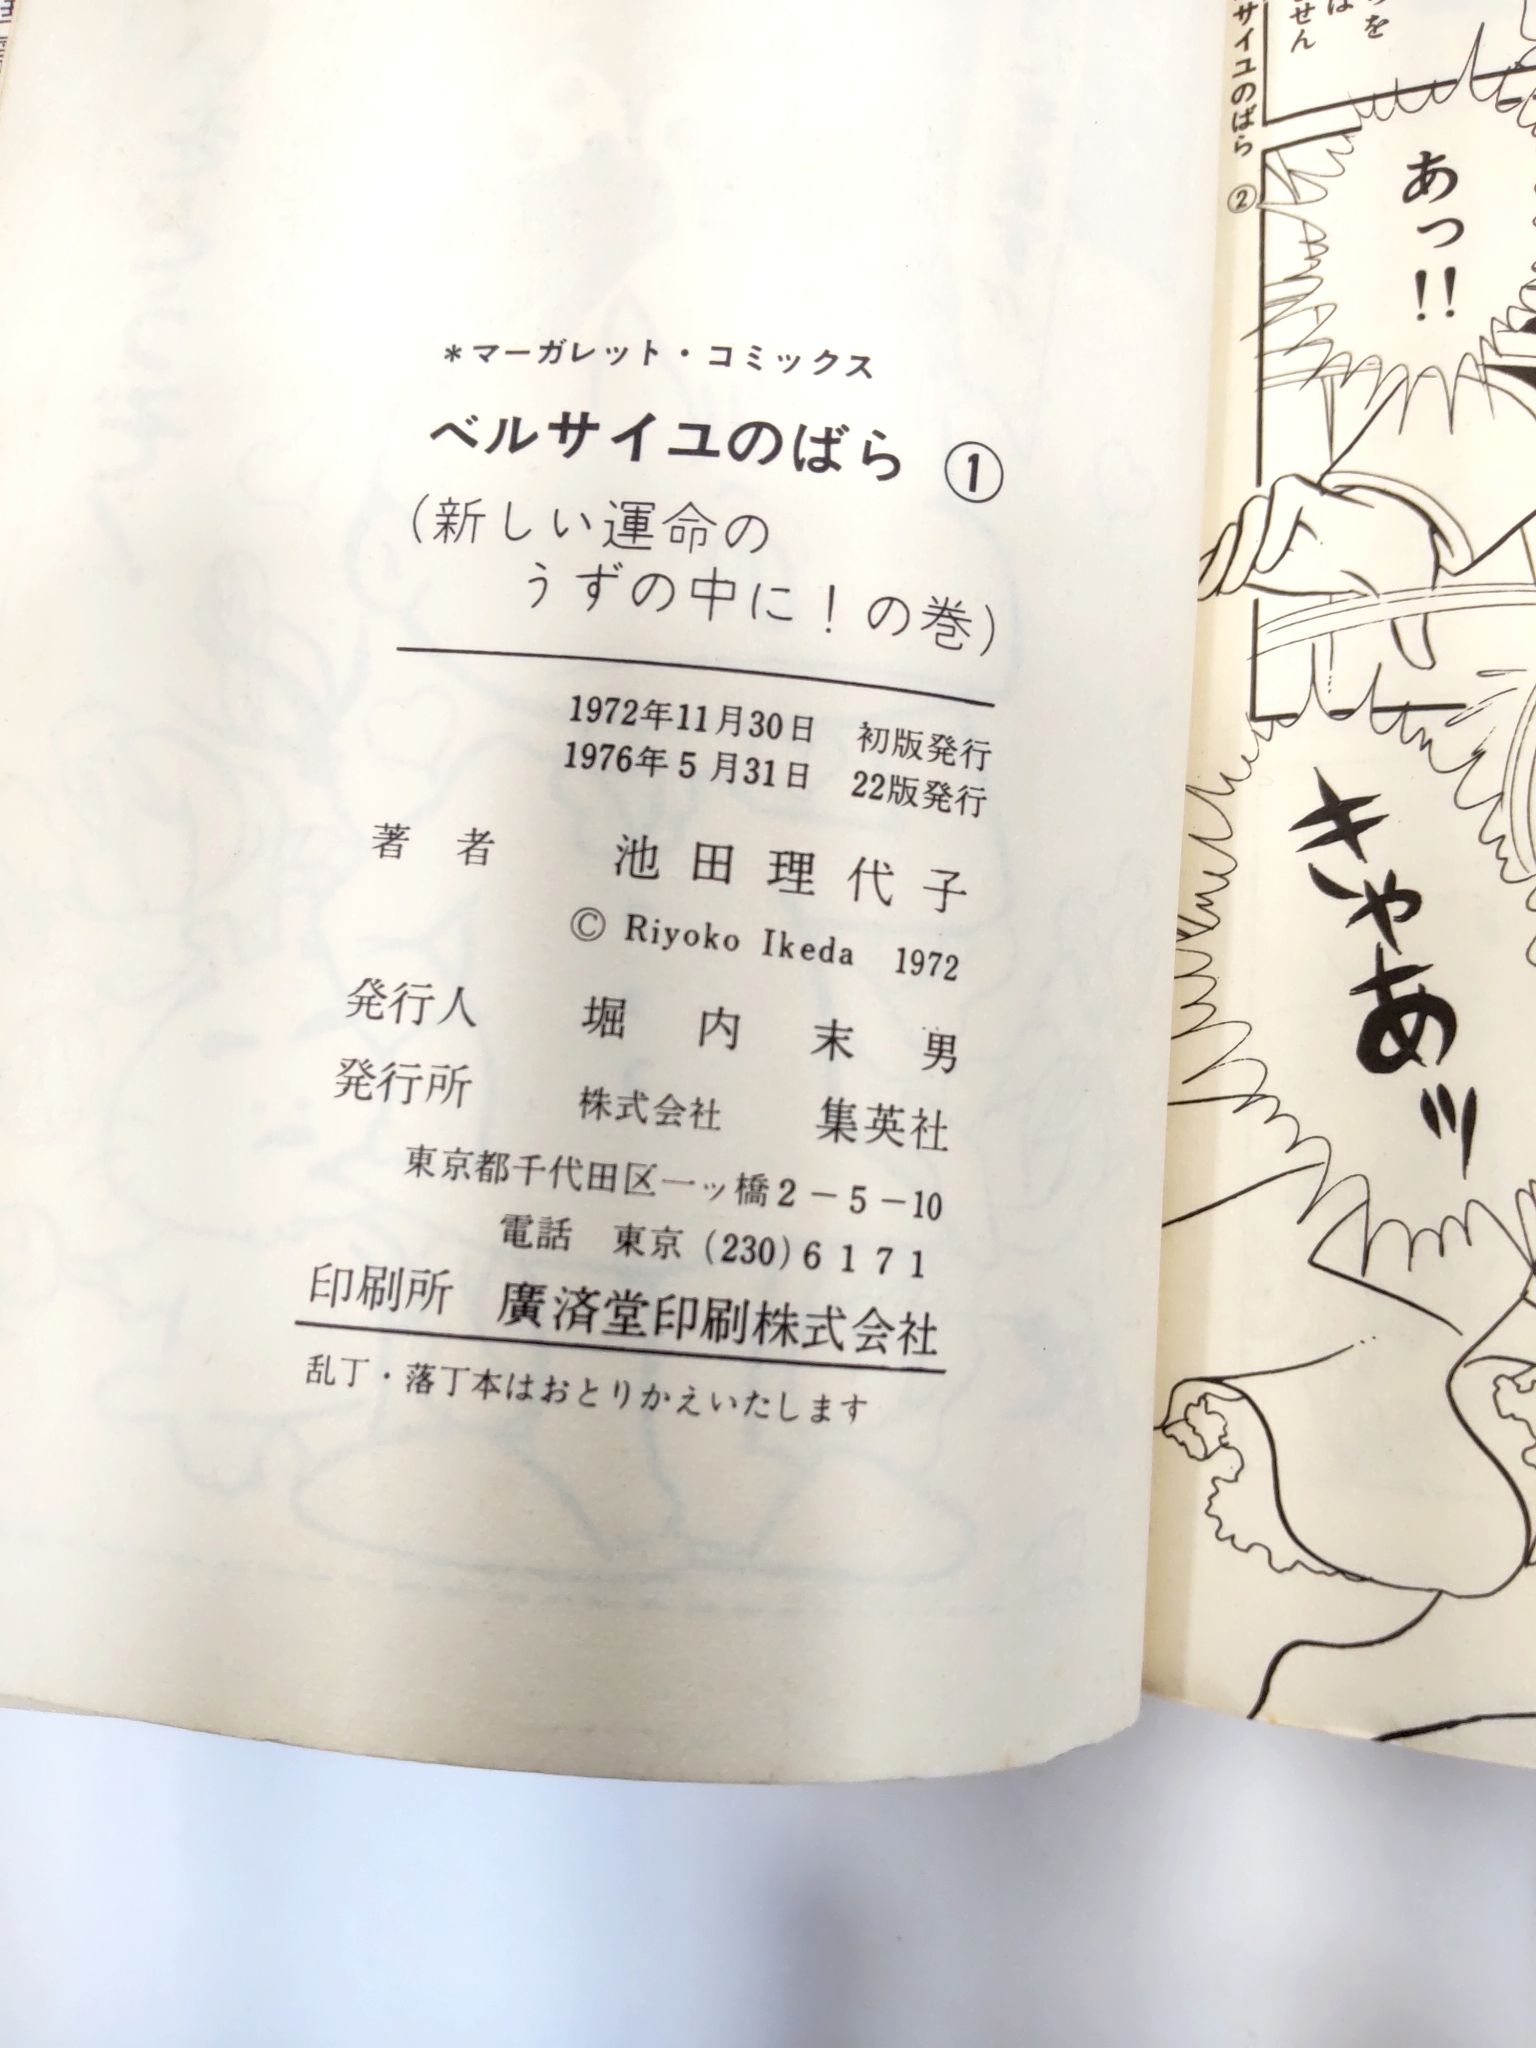 *マーガレット・コミックス
ベルサイユのばら ①
(新しい運命の
うずの中に!の巻)
1972年11月30日 初版発行
1976年5月31日 22版発行
著者 池田理代子
© Riyoko Ikeda 1972
発行人 堀内末男
発行所 株式会社 集英社
東京都千代田区一ッ橋2-5-10
電話 東京(230)6171
印刷所 廣済堂印刷株式会社
乱丁・落丁本はおとりかえいたします
サイユのばら ②
を
は
せん
あっ!!
きゃあッ